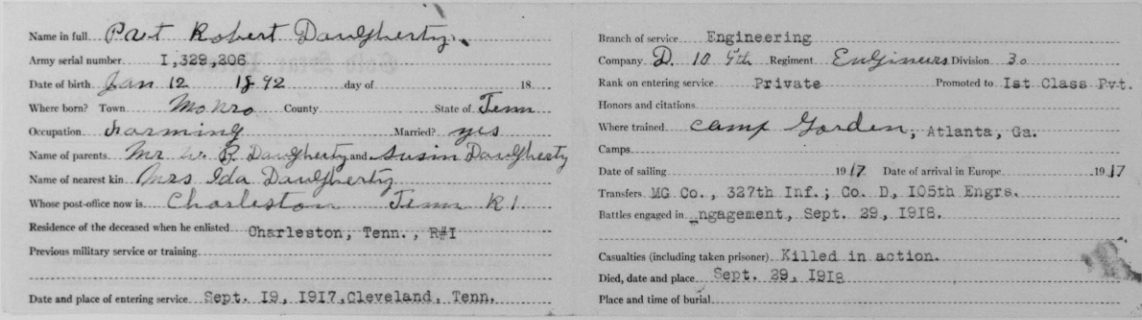 Name in full Pvt Robert Daugherty.
Army serial number 1,329,206
Date of birth Jan 12 1892 day of 18
Where born? Town Monro County State of Tenn
Occupation Farming Married? yes
Name of parents Mr W. P. Daugherty and Susin Daugherty
Name of nearest kin Mrs Ida Daugherty
Whose post-office now is Charleston Tenn R 1
Residence of the deceased when he enlisted Charleston, Tenn., R#1
Previous military service or training
Date and place of entering service Sept. 19, 1917, Cleveland, Tenn.
Branch of service Engineering
Company D. 105th Regiment Engineers Division 30
Rank on entering service Private Promoted to 1st Class Pvt.
Honors and citations
Where trained Camp Gorden, Atlanta, Ga.
Camps
Date of sailing 1917 Date of arrival in Europe 1917
Transfers MG Co., 327th Inf.; Co. D, 105th Engrs.
Battles engaged in ngagement, Sept. 29, 1918.
Casualties (including taken prisoner) Killed in action.
Died, date and place Sept. 29, 1918
Place and time of burial